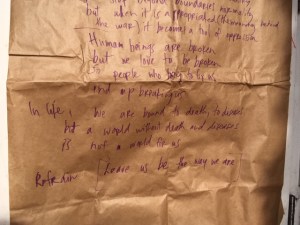 beyond boundaries
but when it is appropriated (
the war) it become a tool of oppression
Human beings are broken
but we love to be broken
people who
end up
In life, we are bound to death, to diseases
but a world without death and diseases
is not a world for us
Refrain (Leave us be the way we are)